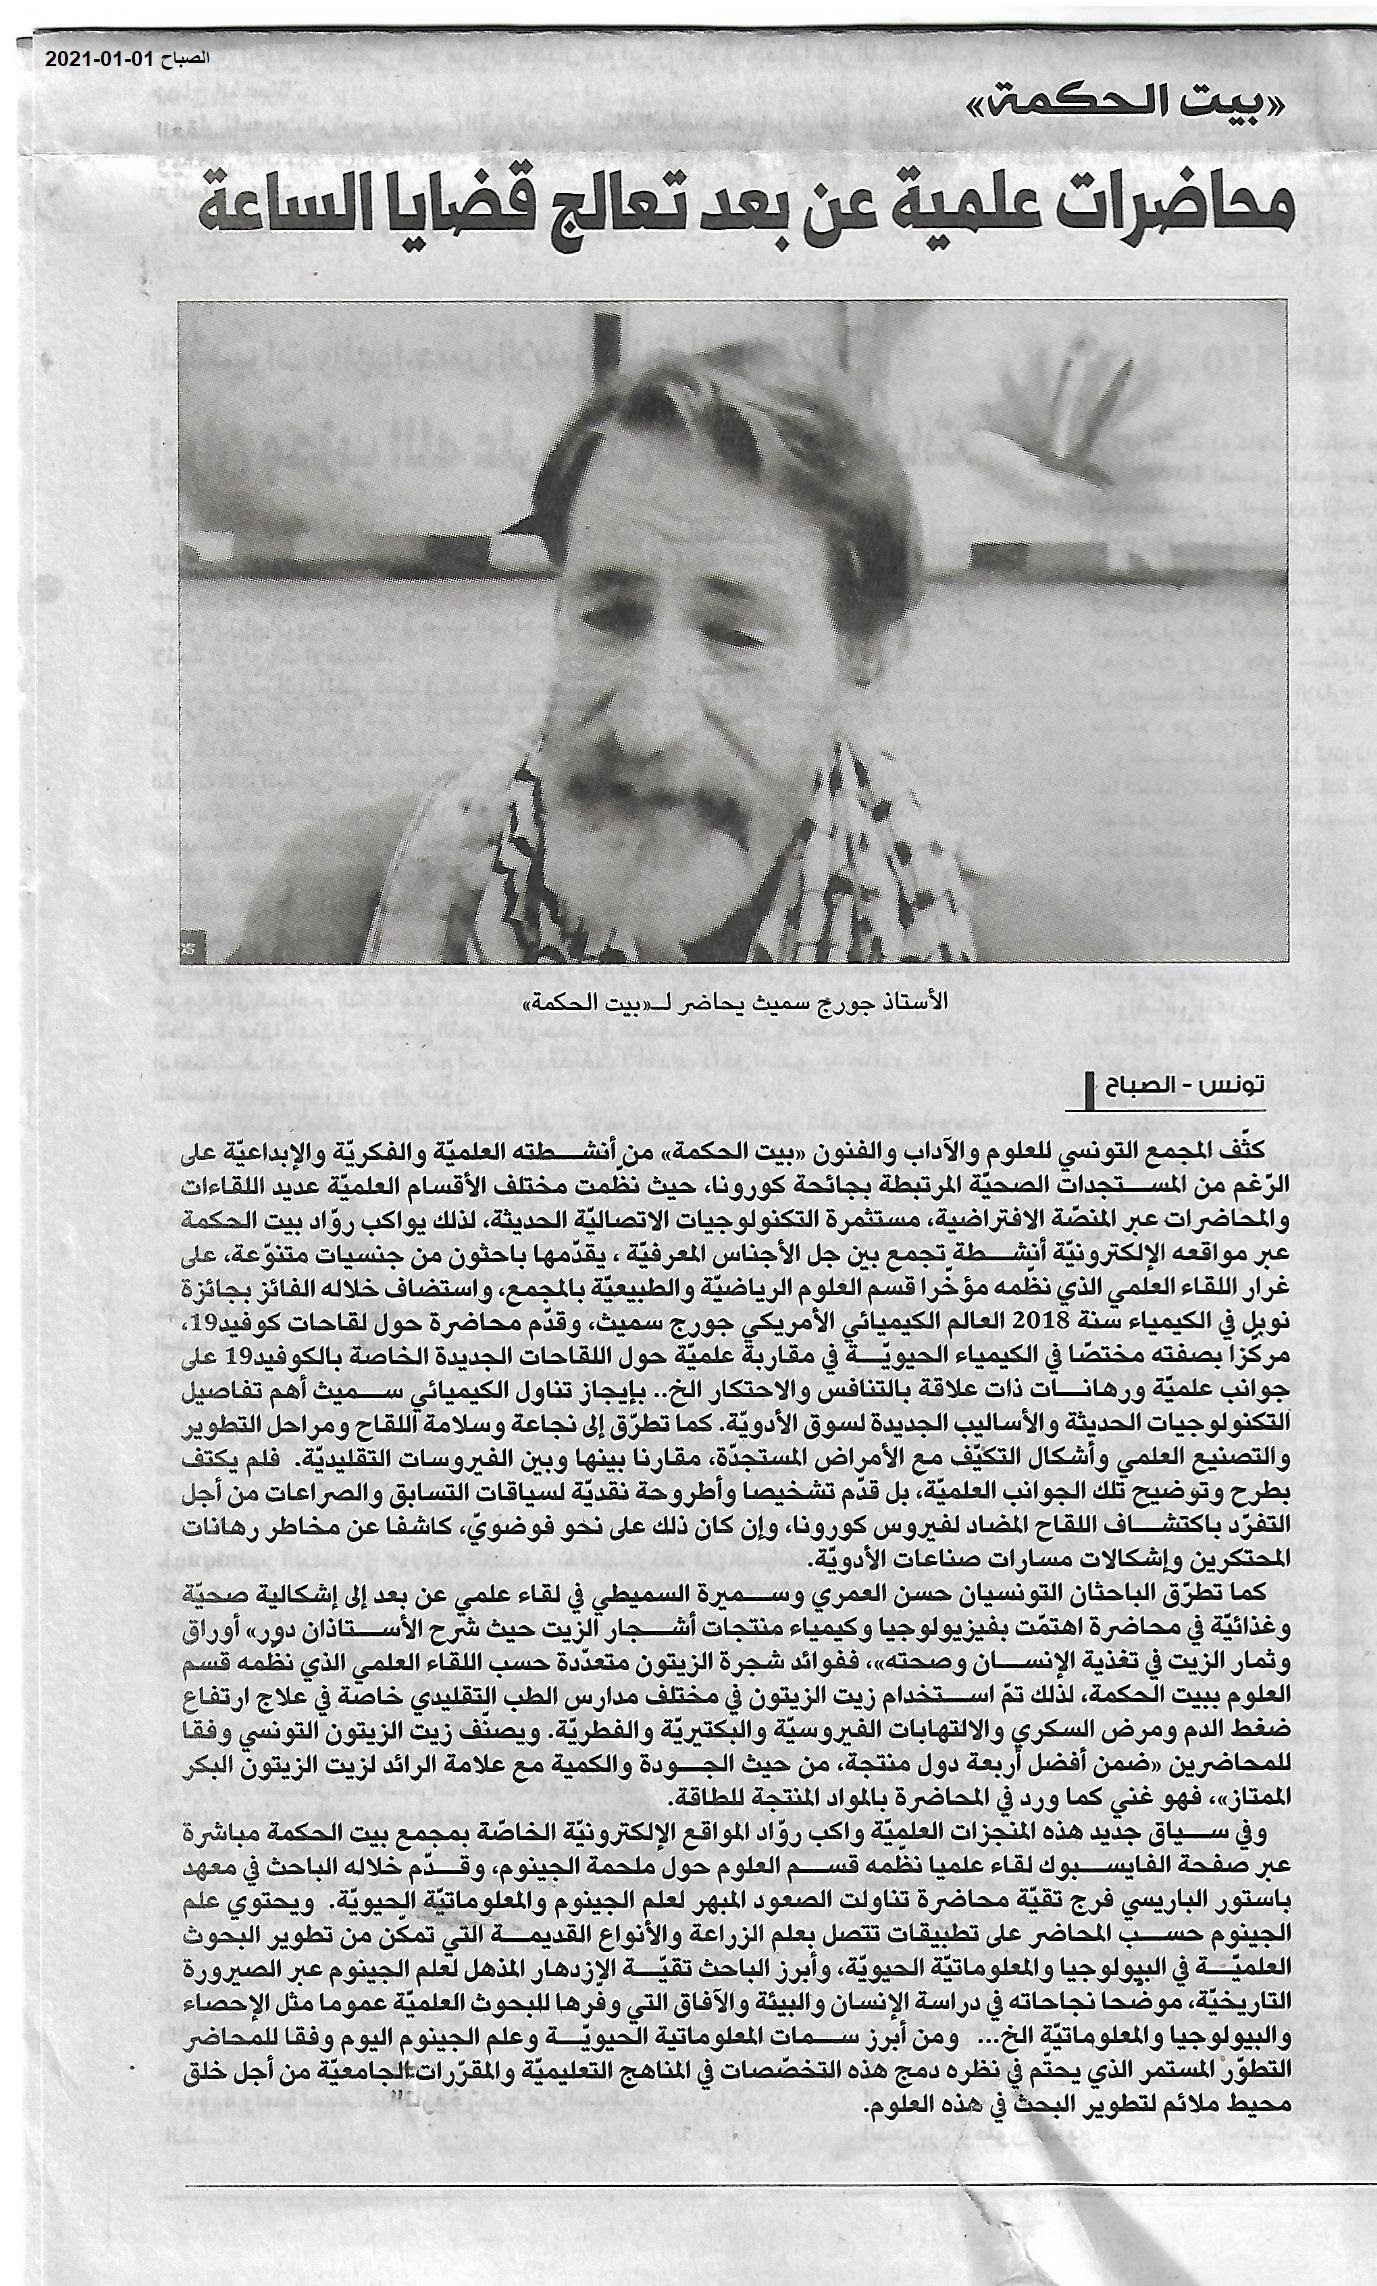 الصباح 01-01-2021
«بيت الحكمة»
محاضرات علمية عن بعد تعالج قضايا الساعة
الأستاذ جورج سميث يحاضر لـ«بيت الحكمة»
تونس - الصباح
كثّف المجمع التونسي للعلوم والآداب والفنون «بيت الحكمة» من أنشطته العلميّة والفكريّة والإبداعيّة على
الرّغم من المستجدات الصحيّة المرتبطة بجائحة كورونا، حيث نظّمت مختلف الأقسام العلميّة عديد اللقاءات
والمحاضرات عبر المنصّة الافتراضية، مستثمرة التكنولوجيات الاتصاليّة الحديثة، لذلك يواكب روّاد بيت الحكمة
عبر مواقعه الإلكترونيّة أنشطة تجمع بين جل الأجناس المعرفيّة ، يقدّمها باحثون من جنسيات متنوّعة، على
غرار اللقاء العلمي الذي نظّمه مؤخّرا قسم العلوم الرياضيّة والطبيعيّة بالمجمع، واستضاف خلاله الفائز بجائزة
نوبل في الكيمياء سنة 2018 العالم الكيميائي الأمريكي جورج سميث، وقدّم محاضرة حول لقاحات كوفيد19،
مركّزا بصفته مختصّا في الكيمياء الحيويّة في مقاربة علميّة حول اللقاحات الجديدة الخاصة بالكوفيد19 على
جوانب علميّة ورهانات ذات علاقة بالتنافس والاحتكار الخ.. بإيجاز تناول الكيميائي سميث أهم تفاصيل
التكنولوجيات الحديثة والأساليب الجديدة لسوق الأدويّة. كما تطرّق إلى نجاعة وسلامة اللقاح ومراحل التطوير
والتصنيع العلمي وأشكال التكيّف مع الأمراض المستجدّة، مقارنا بينها وبين الفيروسات التقليديّة. فلم يكتف
بطرح وتوضيح تلك الجوانب العلميّة، بل قدّم تشخيصا وأطروحة نقديّة لسياقات التسابق والصراعات من أجل
التفرّد باكتشاف اللقاح المضاد لفيروس كورونا، وإن كان ذلك على نحو فوضويّ، كاشفا عن مخاطر رهانات
المحتكرين وإشكالات مسارات صناعات الأدويّة.
كما تطرّق الباحثان التونسيان حسن العمري وسميرة السميطي في لقاء علمي عن بعد إلى إشكالية صحيّة
وغذائيّة في محاضرة اهتمّت بفيزيولوجيا وكيمياء منتجات أشجار الزيت حيث شرح الأستاذان دور» أوراق
وثمار الزيت في تغذية الإنسان وصحته»، ففوائد شجرة الزيتون متعدّدة حسب اللقاء العلمي الذي نظّمه قسم
العلوم ببيت الحكمة، لذلك تمّ استخدام زيت الزيتون في مختلف مدارس الطب التقليدي خاصة في علاج ارتفاع
ضغط الدم ومرض السكري والالتهابات الفيروسيّة والبكتيريّة والفطريّة. ويصنّف زيت الزيتون التونسي وفقا
للمحاضرين «ضمن أفضل أربعة دول منتجة، من حيث الجودة والكمية مع علامة الرائد لزيت الزيتون البكر
الممتاز»، فهو غني كما ورد في المحاضرة بالمواد المنتجة للطاقة.
وفي سياق جديد هذه المنجزات العلميّة واكب روّاد المواقع الإلكترونيّة الخاصّة بمجمع بيت الحكمة مباشرة
عبر صفحة الفايسبوك لقاء علميا نظّمه قسم العلوم حول ملحمة الجينوم، وقدّم خلاله الباحث في معهد
باستور الباريسي فرج تقيّة محاضرة تناولت الصعود المبهر لعلم الجينوم والمعلوماتيّة الحيويّة. ويحتوي علم
الجينوم حسب المحاضر على تطبيقات تتصل بعلم الزراعة والأنواع القديمة التي تمكّن من تطوير البحوث
العلميّة في البيولوجيا والمعلوماتيّة الحيويّة، وأبرز الباحث تقيّة الإزدهار المذهل لعلم الجينوم عبر الصيرورة
التاريخيّة، موضّحا نجاحاته في دراسة الإنسان والبيئة والآفاق التي وفّرها للبحوث العلميّة عموما مثل الإحصاء
والبيولوجيا والمعلوماتيّة الخ... ومن أبرز سمات المعلوماتية الحيويّة وعلم الجينوم اليوم وفقا للمحاضر
التطوّر المستمر الذي يحتّم في نظره دمج هذه التخصّصات في المناهج التعليميّة والمقرّرات الجامعيّة من أجل خلق
محيط ملائم لتطوير البحث في هذه العلوم.